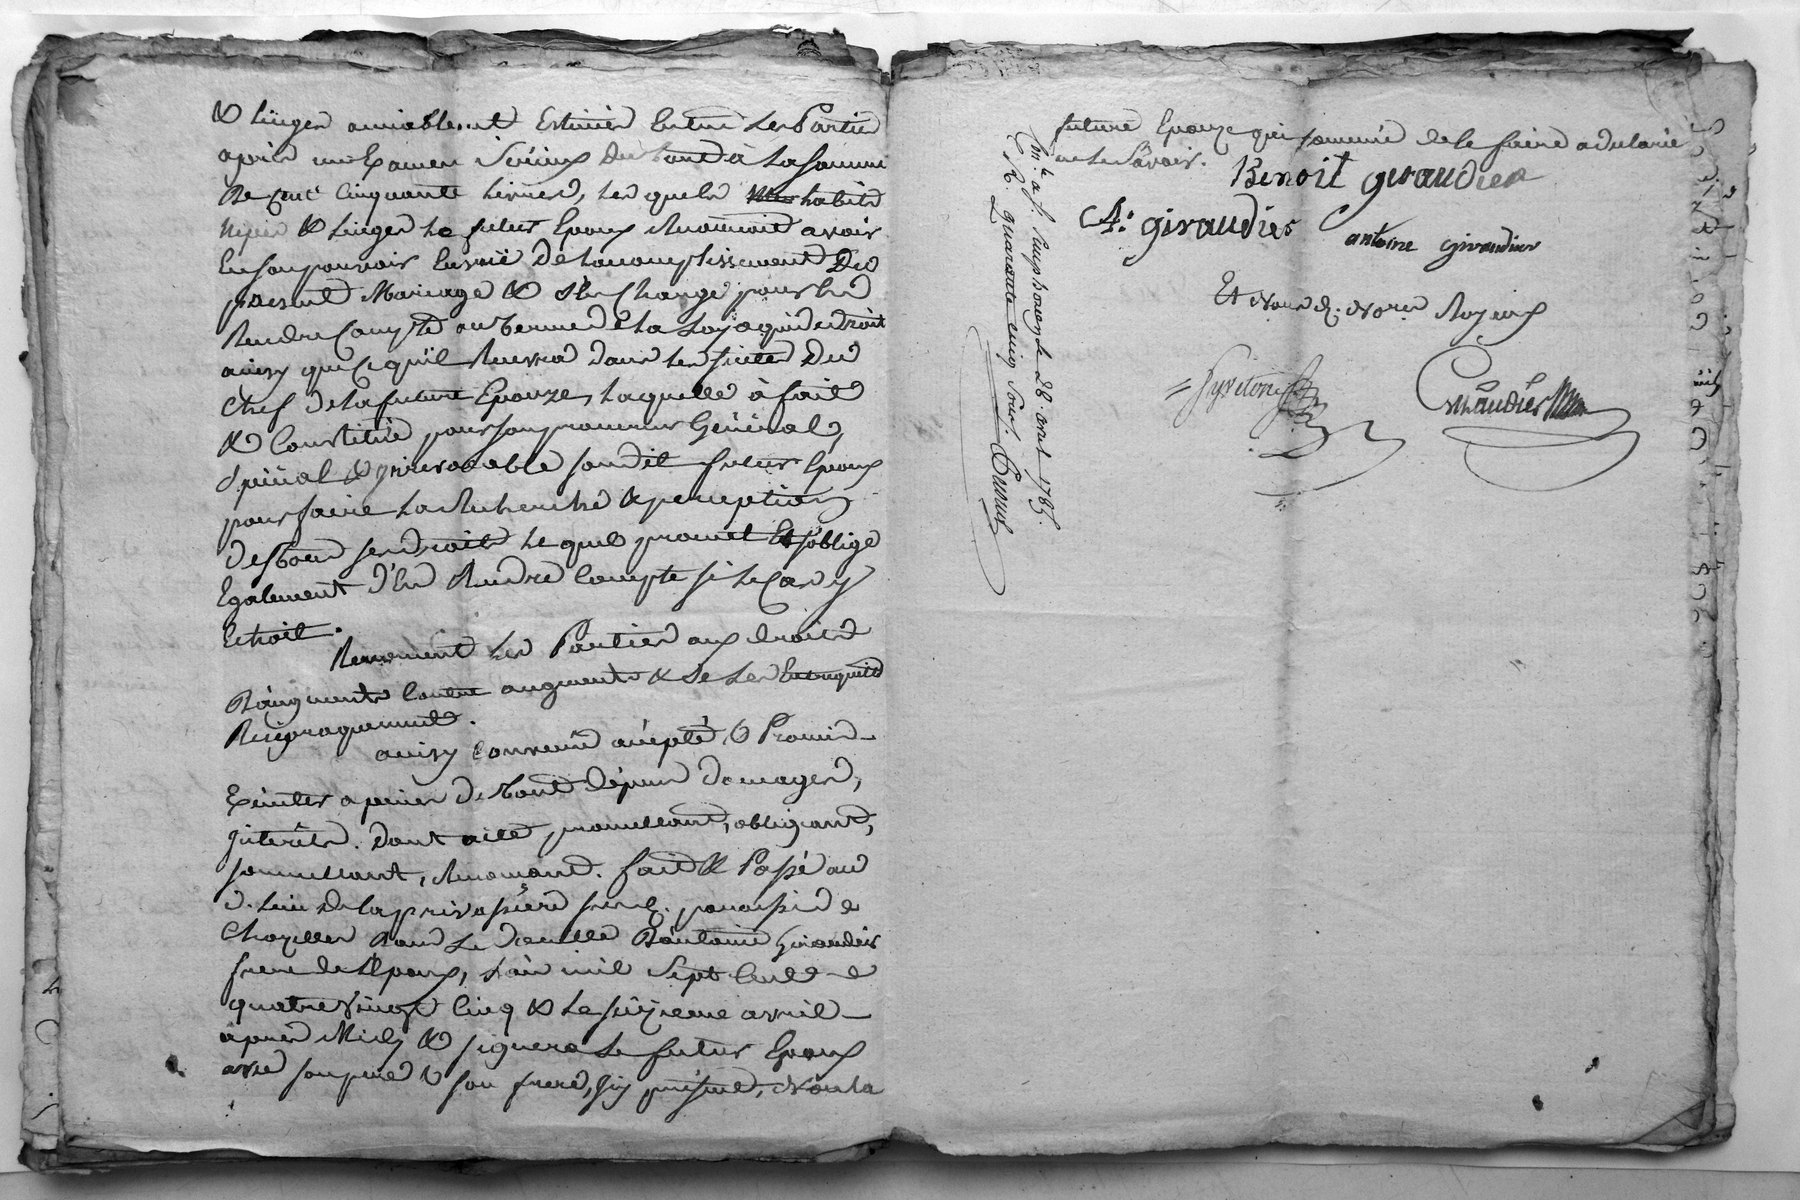 & linger amiablement Estimés Entre Les Parties
après un Examen sérieux du tout à La somme
De cent Cinquante Livres, Les quels habits
nipes & Linges Le futur Epoux Reconnoit avoir
En son pouvoir En vuë De Lacomplissement Du
present Mariage & s'En Charge pour En
Rendre Compte au terme de La Loy a qui de droit
ainsy que Ce qu'il Recevra dans Les suites Du
Chef de La future Epouze, Laquelle à fait
& Constitué pour son procureur Général,
spécial & irrévocable son dit futur Epoux
pour faire La Recherche & perception
de tous ses droits Le quel promet Et s'oblige
Egalement d'En Rendre Compte si Le Cas y
Echoit.
Renoncent Les Parties aux droits
D'augments Contre augments & de Les
Reciproquement.
ainsy Convenû accepté, & Promis
Exécuter a peines De tout Dépens Domages,
Intérêts. Dont acte promettant, obligeant,
soumettant, Renonçant. fait & Passé au
d. Lieu de La paroisse de
Chazelles Dans Le domicille D'antoine Giraudier
frere de L'Epoux, L'an mil sept Cent
quatre vingt Cinq & Le seizieme avril
après Midy & signera Le futur Epoux
avec son pere & son frere, Icy présent, Non La
future Epouze qui sommée de le faire a declaré
ne Le savoir.
Benoit giraudier
A. giraudier
antoine giraudier
Et Nous d. Nores Royaux
Le 28. avril 1785.
R. quarante cinq sous.